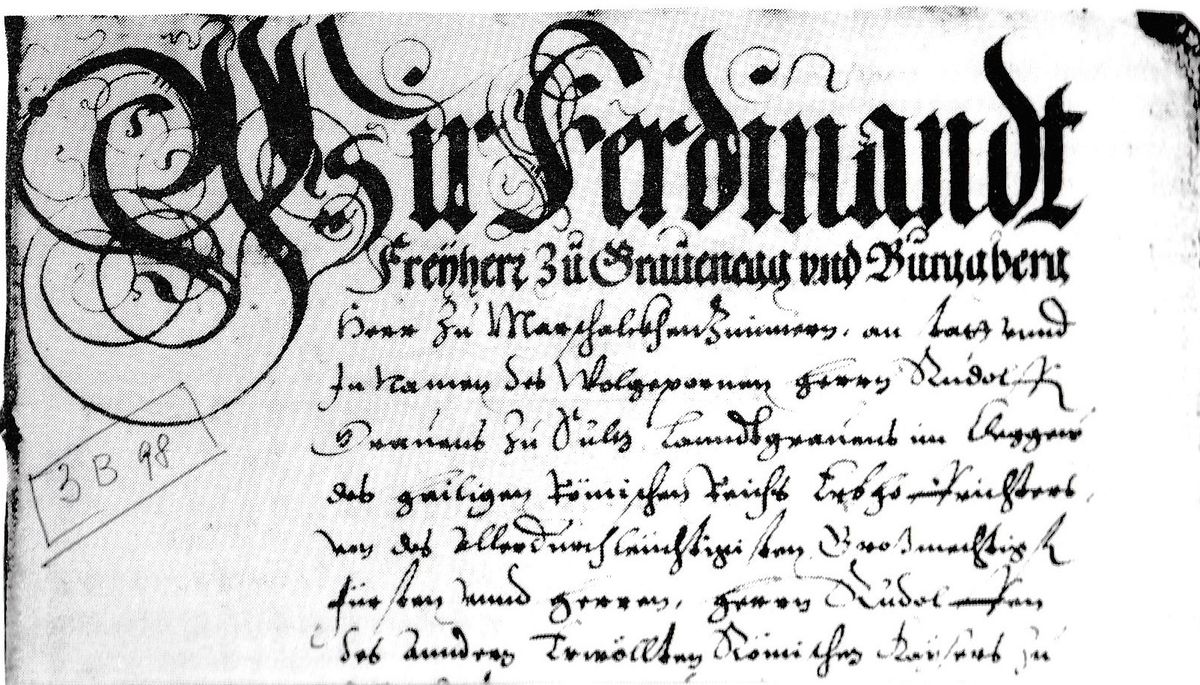 Wir Ferdinandt
Freÿherr Zu Grauenegg vnd Burggberg
Herr Zu Marschalckhen Zimmern, an statt vnnd
In Namen des Wolgepornen herrn Rudolff
Grauens Zu Sultz Lanndtgrauens im Cleggew
des heiligen Römischen Reichs Erbhoffrichters,
von des Allerdurchleüchtigisten Großmechtigst
fürsten vnnd herren, herrn Rudolffen
des anndern Erwöllten Römischen Kaÿsers zu
3 B 98